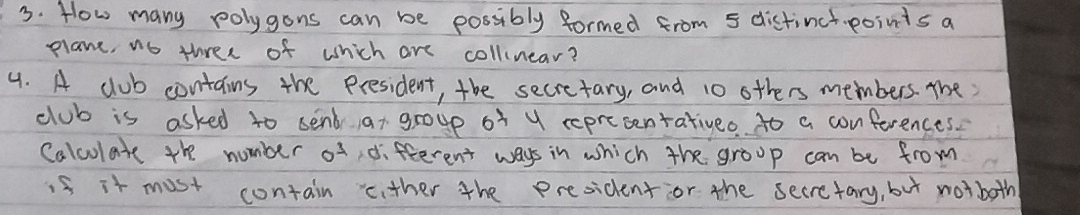 3. How many polygons can be possibly formed from 5 distinct points a
plane, no three of which are collinear?
4. A club contains the President, the secretary, and 10 others members. The
club is asked to send a group of 4 representatives to a conferences.
Calculate the number of different ways in which the group can be from
if it must contain either the president or the secretary, but not both